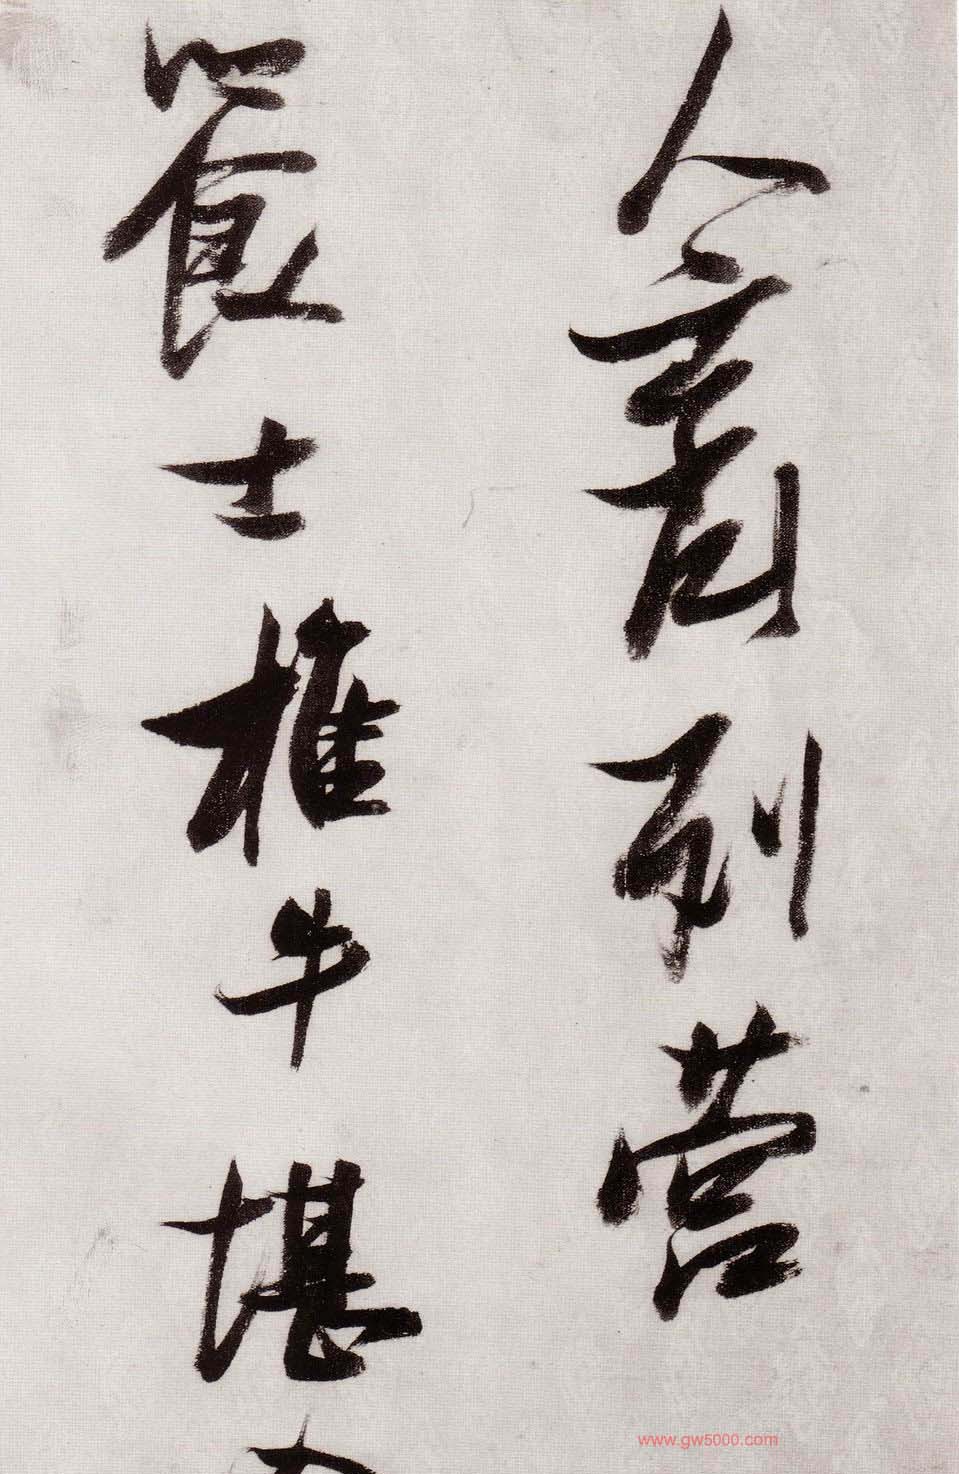 人列營
士椎牛堪
www.gw5000.com